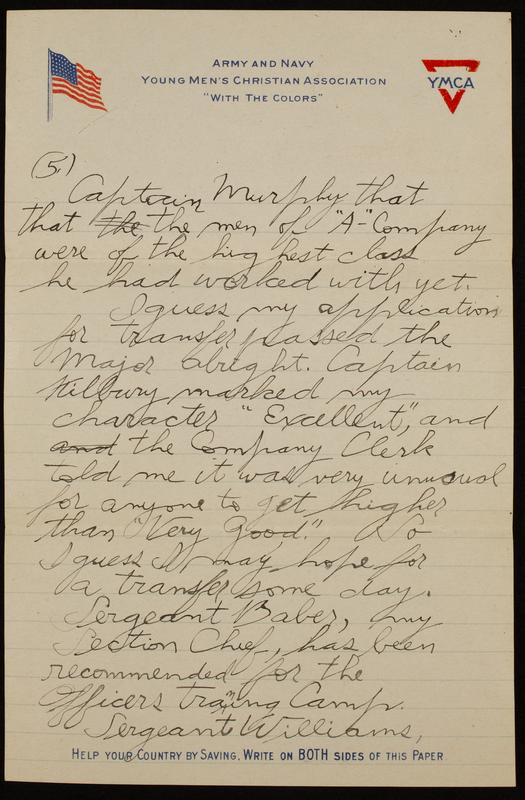 ARMY AND NAVY
YOUNG MEN'S CHRISTIAN ASSOCIATION
"WITH THE COLORS"
YMCA
(5.)
Captain Murphy that
that the the men of "A-" Company
were of the highest class
he had worked with yet.
I guess my application
for transfer passed the
Major alright. Captain
Kilbury marked my
character "Excellent", and
and the Company Clerk
told me it was very unusual
for anyone to get higher
than "Very Good." So
I guess I may hope for
a transfer some day.
Sergeant Baber, my
Section Chief, has been
recommended for the
Officers traing Camp.
Sergeant Williams,
HELP YOUR COUNTRY BY SAVING. WRITE ON BOTH SIDES OF THIS PAPER